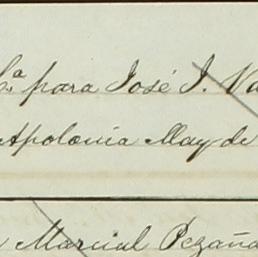 para José J. Va
Apolonia May de
Marcial Pezaña